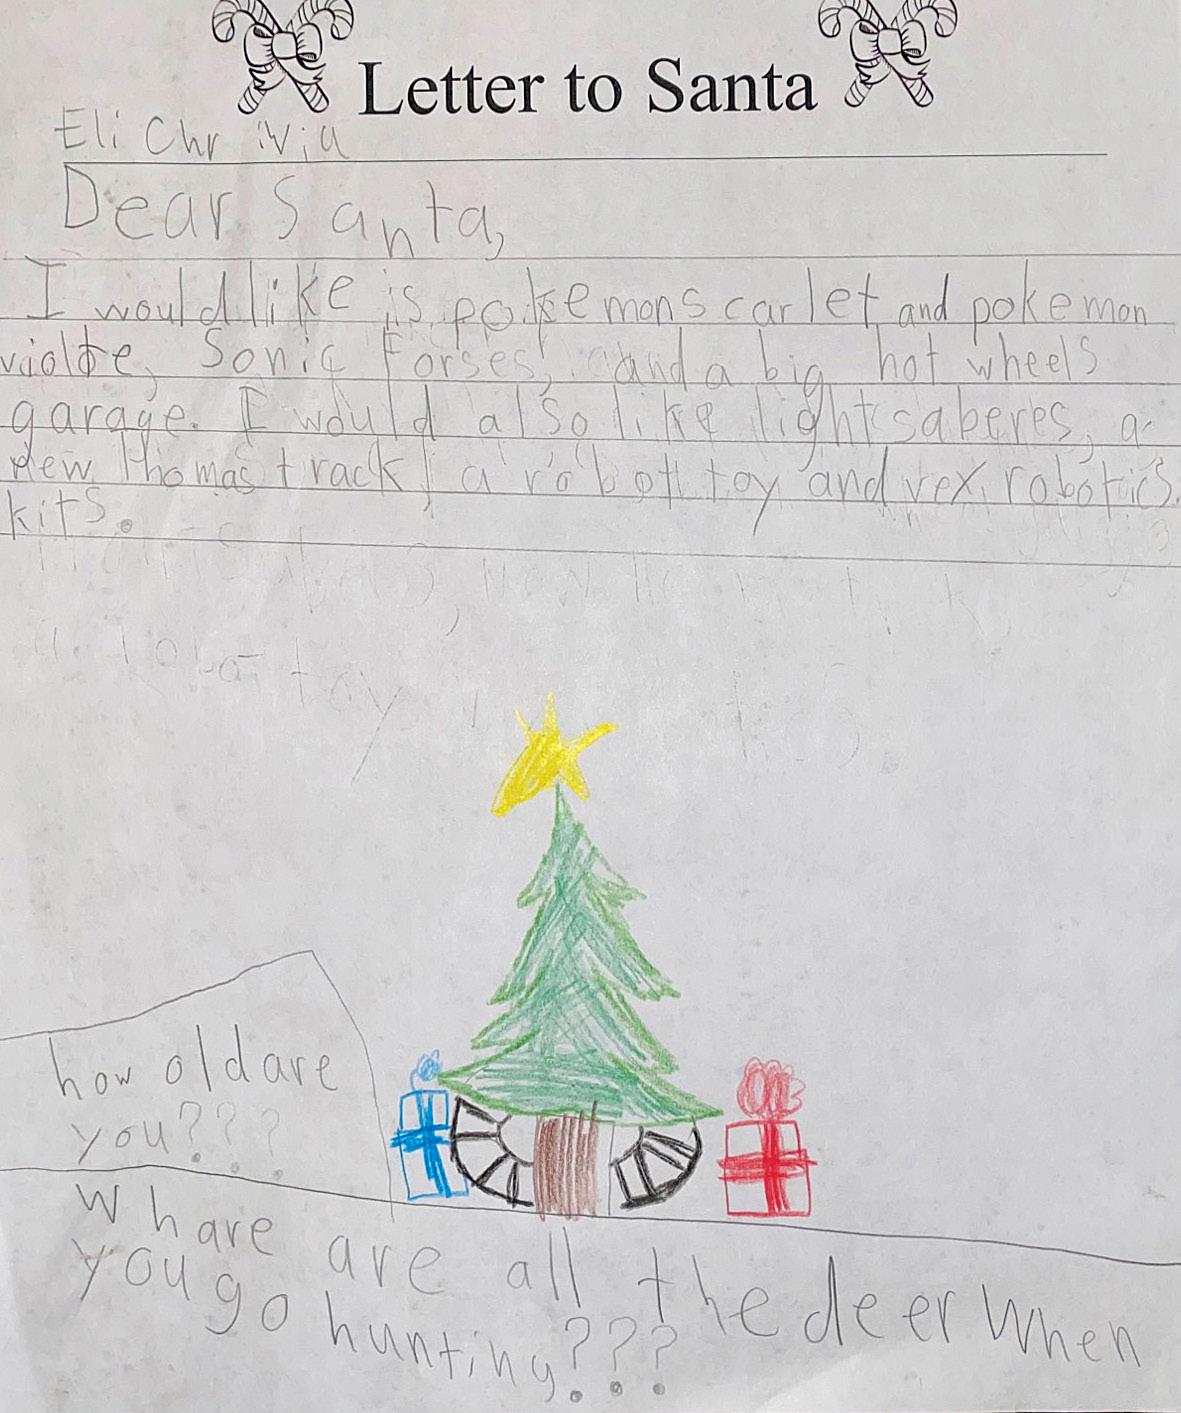 Letter to Santa
Eli
Dear Santa,
I would like is pokemon scarlet and pokemon
violte, Sonic Forses, and a big hot wheels
garage. I would also like lightsaberes, a
new thomas track, a robot toy and vex robotics
kits.
how old are
you???
Whare are all the deer when
you go hunting???